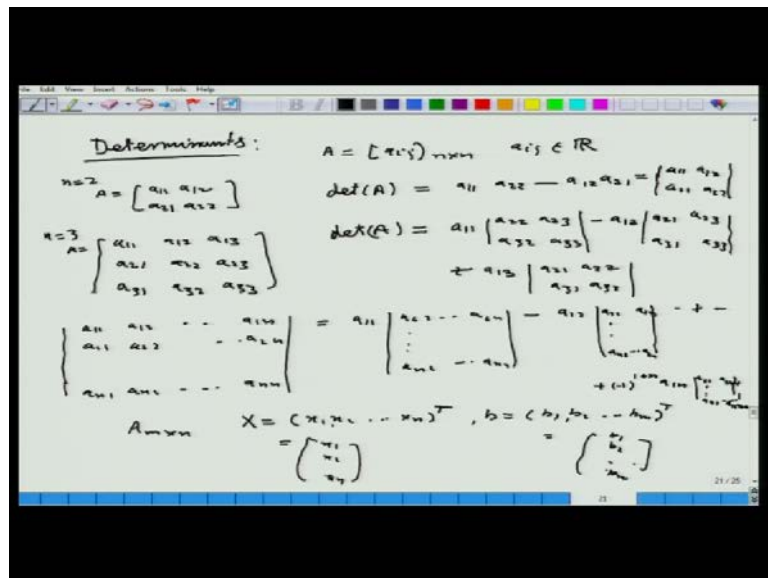 File Edit View Insert Actions Tools Help
Determinants :
A = [aij)n×n aij ∈ ℝ
n=2 A = [a11 a12
a21 a22]
det(A) = a11 a22 − a12 a21 = |a11 a12
a21 a22|
n=3 A = [a11 a12 a13
a21 a22 a23
a31 a32 a33]
det(A) = a11 |a22 a23
a32 a33| − a12 |a21 a23
a31 a33|
+ a13 |a21 a22
a31 a32|
|a11 a12 .. a1n
a21 a22 .. a2n
an1 an2 --- ann| = a11 |a22 .. a2n
:
an2 -- ann| − a12 | | - + -
+ (-1)^1+n a1n
Am×n X = (x1, x2 ... xn)^T , b = (b1, b2 ... bm)^T
= (x1
x2
xn)
= (b1
b2
.
bm)
21 / 25
21